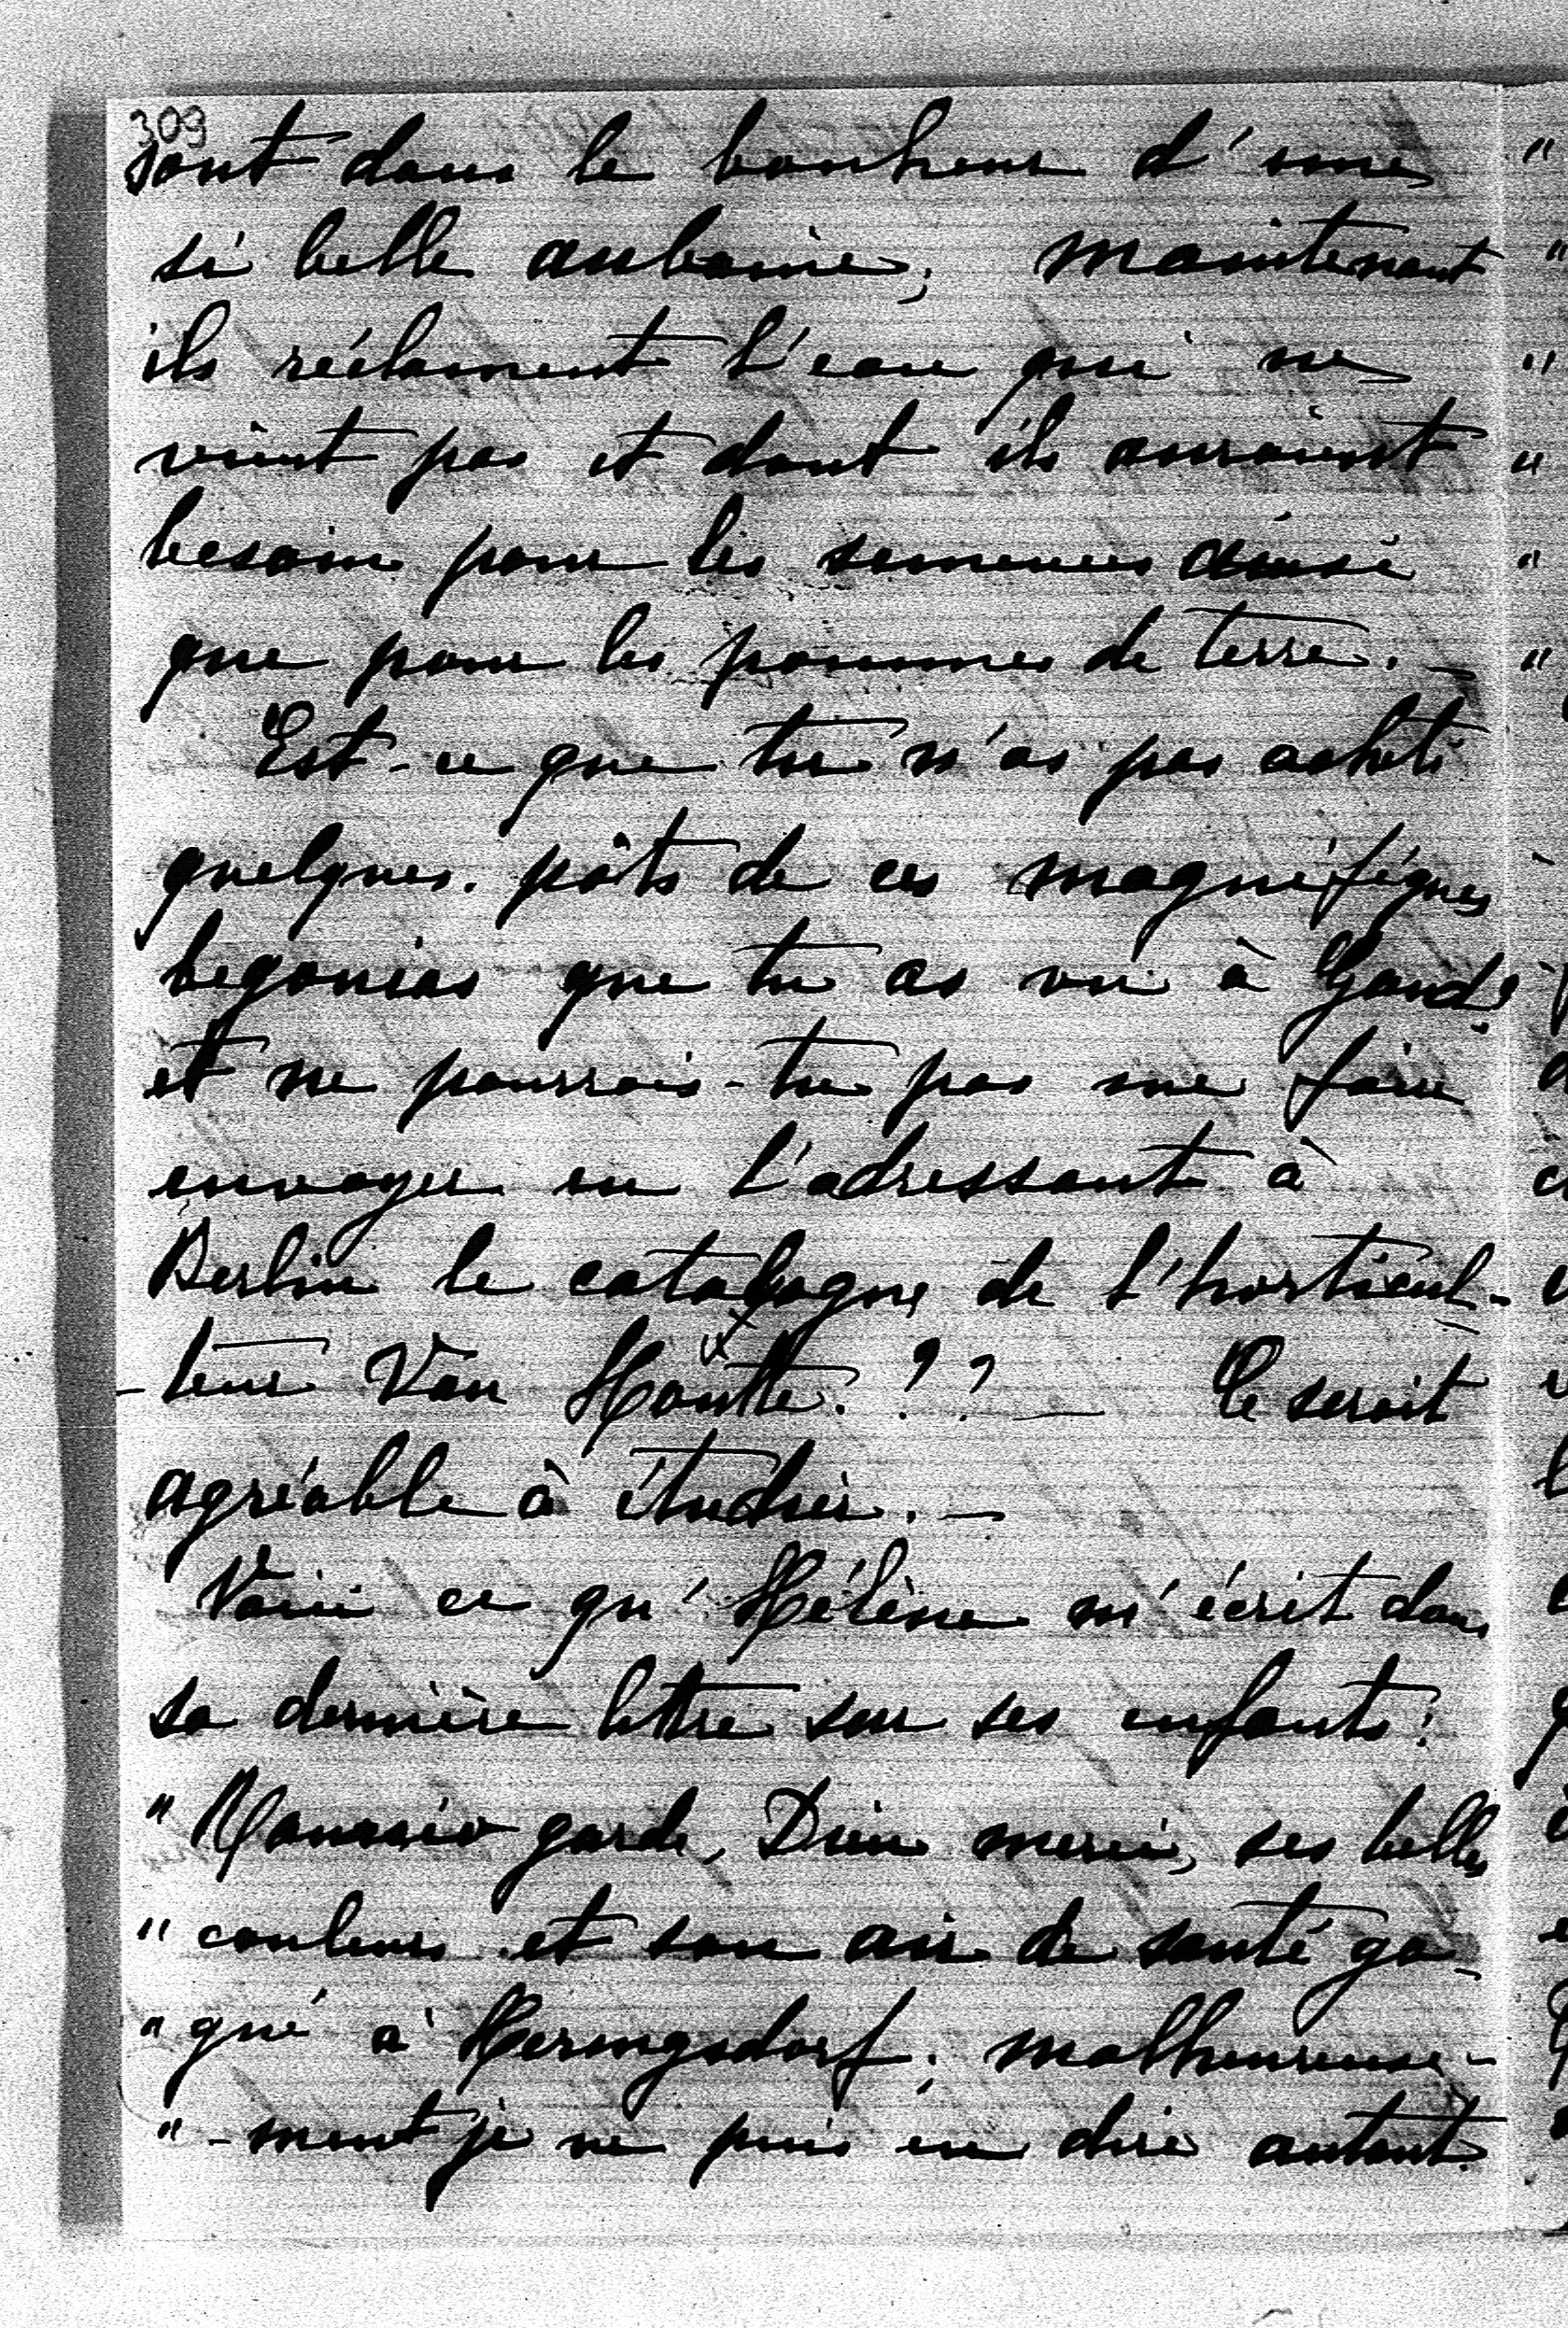 309
sont dans le bonheur d'une
si belle aubaine; maintenant
ils réclament l'eau qui ne
vient pas et dont ils auraient
besoin pour les semences ainsi
que pour les pommes de terre. —
Est-ce que tu n'as pas acheté
quelques pôts de ces magnifiques
begonias que tu as vu à Gand?
et ne pourrais-tu pas me faire
envoyer en l'adressant à
Berlin le catalogue de l'horticul-
-teur Van Houtte. ?? — Ce serait
agréable à étudier. —
Voici ce qu'Hélène m'écrit dans
sa dernière lettre sur ses enfants:
" garde, Dieu merci, ses belles
" couleurs et son air de santé ga-
" gné à Heringsdorf; malheureuse-
" -ment je ne puis en dire autant